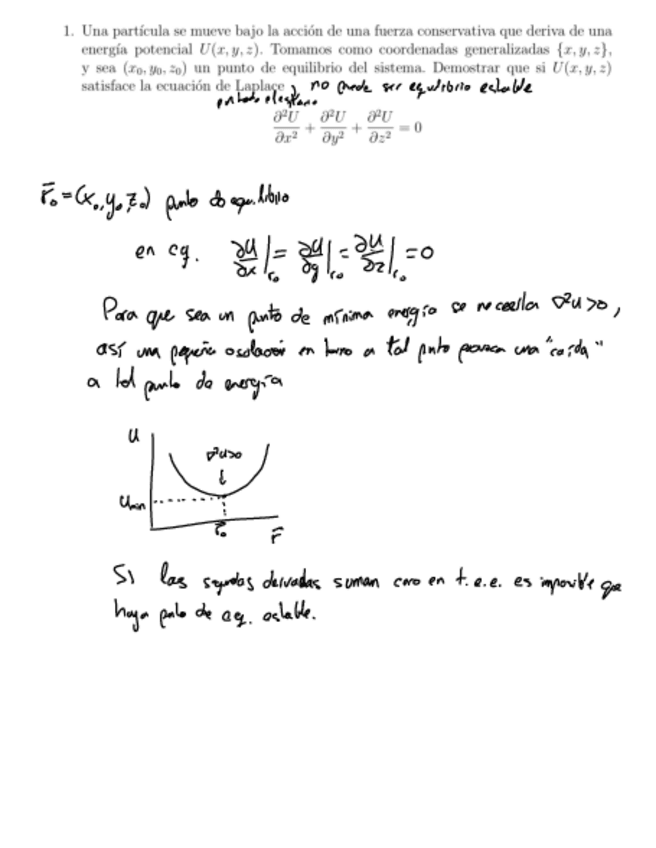 1. Una partícula se mueve bajo la acción de una fuerza conservativa que deriva de una
energía potencial U(x, y, z). Tomamos como coordenadas generalizadas {x, y, z},
y sea (x₀, y₀, z₀) un punto de equilibrio del sistema. Demostrar que si U(x, y, z)
satisface la ecuación de Laplace, no puede ser equilibrio estable
en todo el espacio
∂²U/∂x² + ∂²U/∂y² + ∂²U/∂z² = 0
r̄₀ = (x₀, y₀, z₀) punto de equilibrio
en eq. ∂U/∂x|r₀ = ∂U/∂y|r₀ = ∂U/∂z|r₀ = 0
Para que sea un punto de mínima energía se necesita ∇²U>0,
así una pequeña oscilación en torno a tal punto una "caída"
a tal punto de energía
U
∇²U>0
Umin
r̄₀
r̄
Si las segundas derivadas suman cero en t.e.e. es imposible que
haya punto de eq. estable.